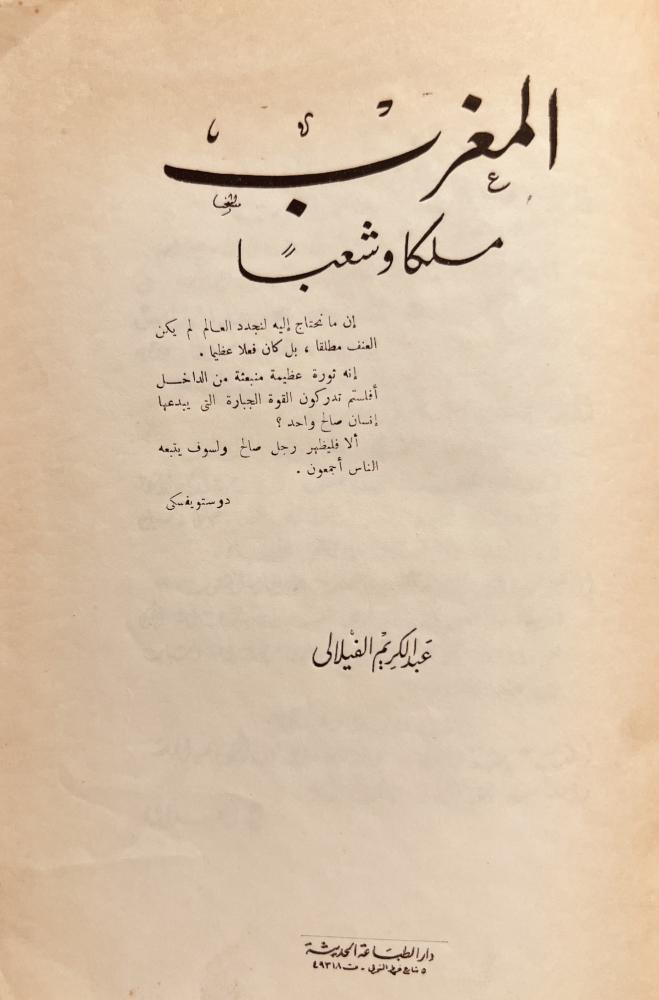 المغرب
ملكا وشعبًا
إن ما نحتاج إليه لنجدد العالم لم يكن
العنف مطلقا ، بل كان فعلا عظيما .
إنه ثورة عظيمة منبعثة من الداخل
أفلستم تدركون القوة الجبارة التى يبدعها
إنسان صالح واحد ؟
ألا فليظهر رجل صالح ولسوف يتبعه
الناس أجمعون .
دوستويفسكى
عبد الكريم الفيلالى
دار الطباعة الحديثة
٥ شارع - ت ٤٩٣١٨